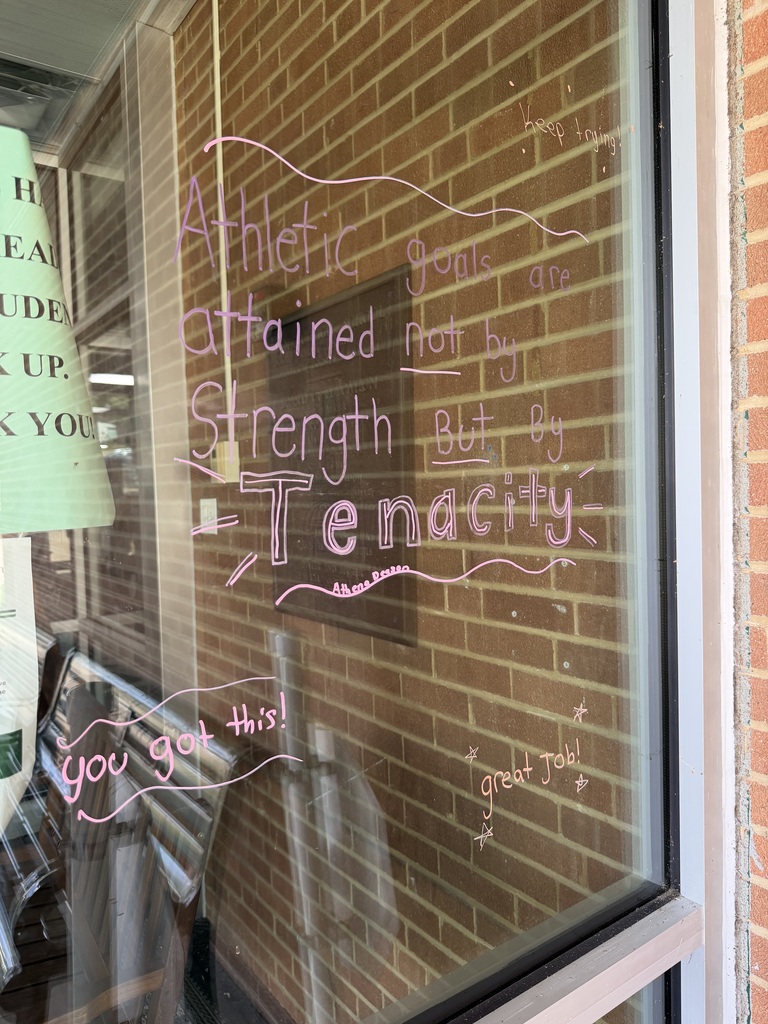 Keep trying!
Athletic goals are
attained not by
Strength But By
Tenacity
you got this!
great Job!
UP.
YOU!